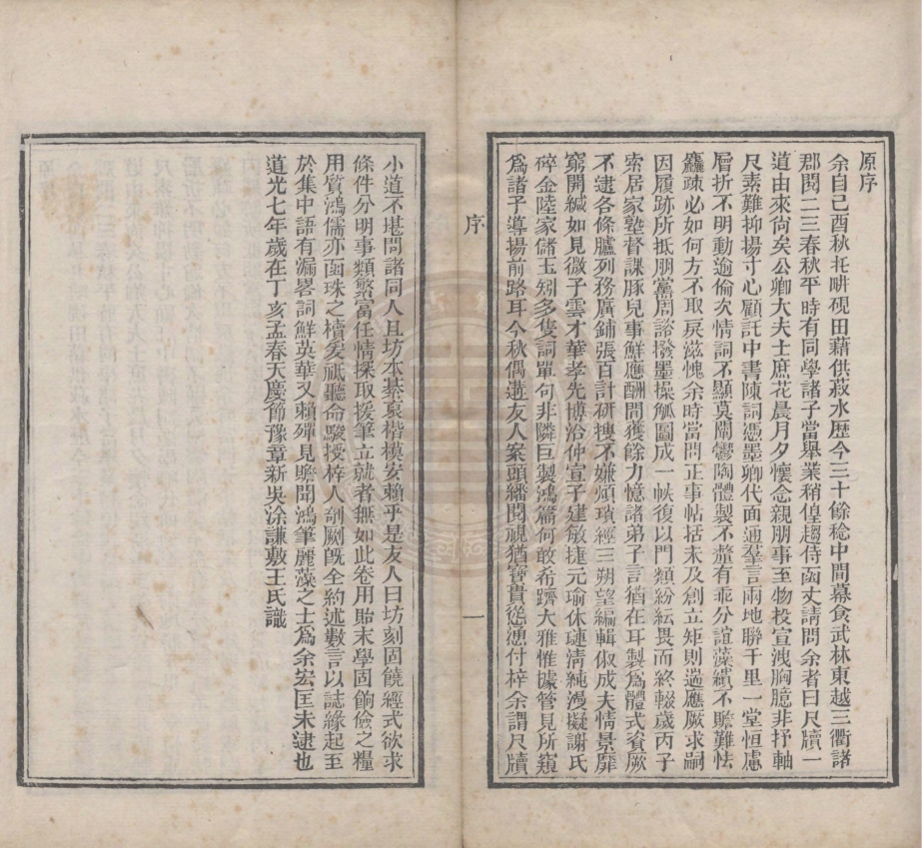 原序
余自己酉秋托耕硯田藉供菽水歷今三十餘稔中間幕食武林東越三衢諸
郡閱二三春秋平時有同學諸子當舉業稍偟趨侍函丈請問余者曰尺牘一
道由來尚矣公卿大夫士庶花晨月夕懷念親朋事至物投宣洩胸臆非抒軸
尺素難抑揚寸心顧託中書陳詞憑墨卿代面通羣言兩地聯千里一堂恒慮
層折不明動逾倫次情詞不顯莫闡鬱陶體製不釐有乖分誼藻繢不贍難怯
麤疏必如何方不取戾滋愧余時當問正事帖括未及創立矩則遄應厥求嗣
因履跡所抵朋黨周諮撥墨操觚圖成一帙復以門類紛紜畏而終輟歲丙子
索居家塾督課豚兒事鮮應酬間獲餘力憶諸弟子言猶在耳製為體式資厥
不逮各條臚列務廣鋪張百計研搜不嫌煩瑣經三朔望編輯俶成夫情景靡
窮開緘如見微子雲才華孝先博洽仲宣子建敏捷元瑜休璉清純漫擬謝氏
碎金陸家儲玉矧多隻詞單句非隣巨製鴻篇何敢希躋大雅惟據管見所窺
為諸子導揚前路耳今秋偶遇友人案頭繙閱視猶寶貴慫慂付梓余謂尺牘
序
一
小道不堪問諸同人且坊本綦裒楷模安賴乎是友人曰坊刻固饒經式欲求
條件分明事類繁富任情採取援筆立就者無如此卷用貽末學固餉儉之糧
用質鴻儒亦函珠之櫝爰祇聽命駿授梓人剞劂既全約述數言以誌緣起至
於集中語有漏畧詞鮮英華又賴殫見贍聞鴻筆麗藻之士為余宏匡未逮也
道光七年歲在丁亥孟春天慶節豫章新吳涂謙敷王氏識